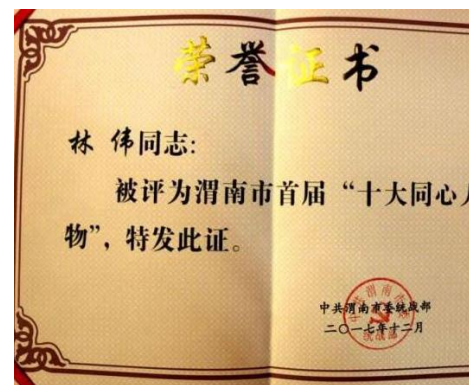 荣誉证书
林 伟同志:
被评为渭南市首届“十大同心人
物”，特发此证。
中共渭南市委统战部
二〇一七年十二月